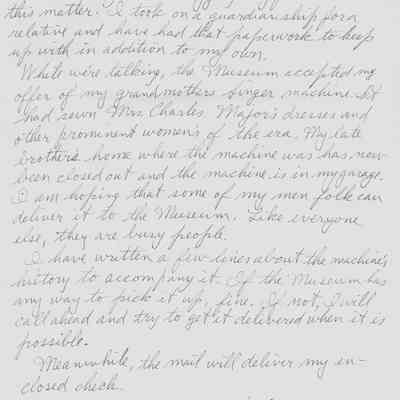 this matter. I took on a guardianship for a
relative and have had that paperwork to keep
up with in addition to my own.
While we're talking, the Museum accepted my
offer of my grandmothers Singer machine. It
had sewn Mrs Charles Major's dresses and
other prominent women's of the era. My late
brother's home where the machine was has now
been closed out and the machine is in my garage.
I am hoping that some of my men folk can
deliver it to the Museum. Like everyone
else, they are busy people.
I have written a few lines about the machine's
history to accompany it. If the Museum has
any way to pick it up, fine. If not, I will
call ahead and try to get it delivered when it is
possible.
Meanwhile, the mail will deliver my en-
closed check.